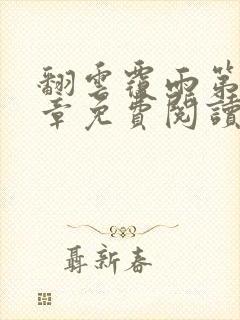 翻雲覆雨第
章免費閱讀
聶新春